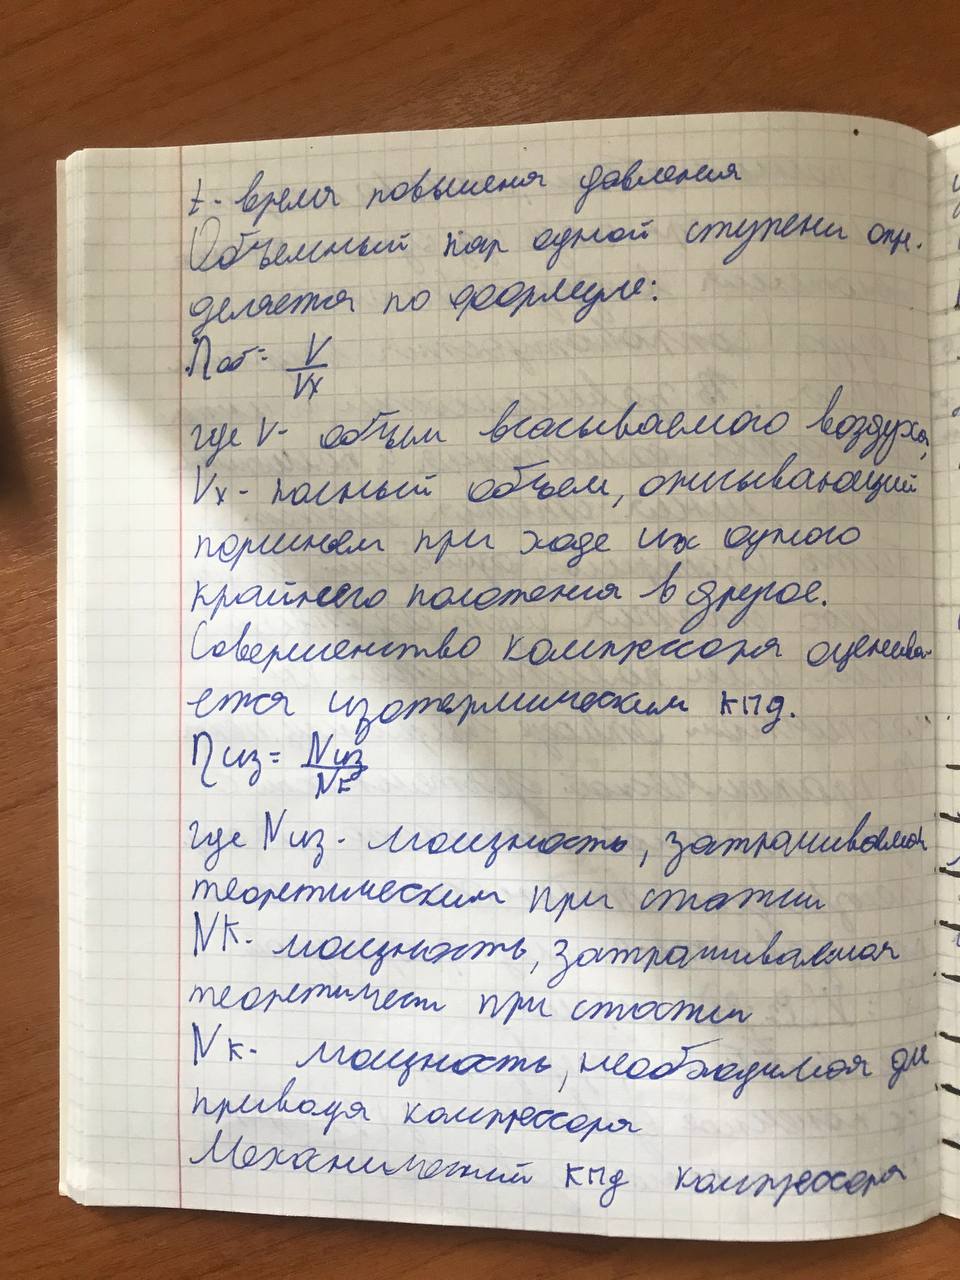 t - время повышеня давления
Объемный пар одной ступени опр.
деляется по формуле:
ηоб = V/Vx
где V - объем всасываемого воздуха,
Vx - полный объем, описывающий
поршнем при ходе их одного
крайнего положения в другое.
Совершенство компрессора оценива-
ется изотермическим кпд.
ηиз = Nиз/Nк
где Nиз - мощность, затрачиваемая
теоретическим при сжатии
Nк - мощность, затрачиваемая
теоретичест при сжатии
Nк - мощность, необходимая дл
привода компрессора
Механический кпд компрессора